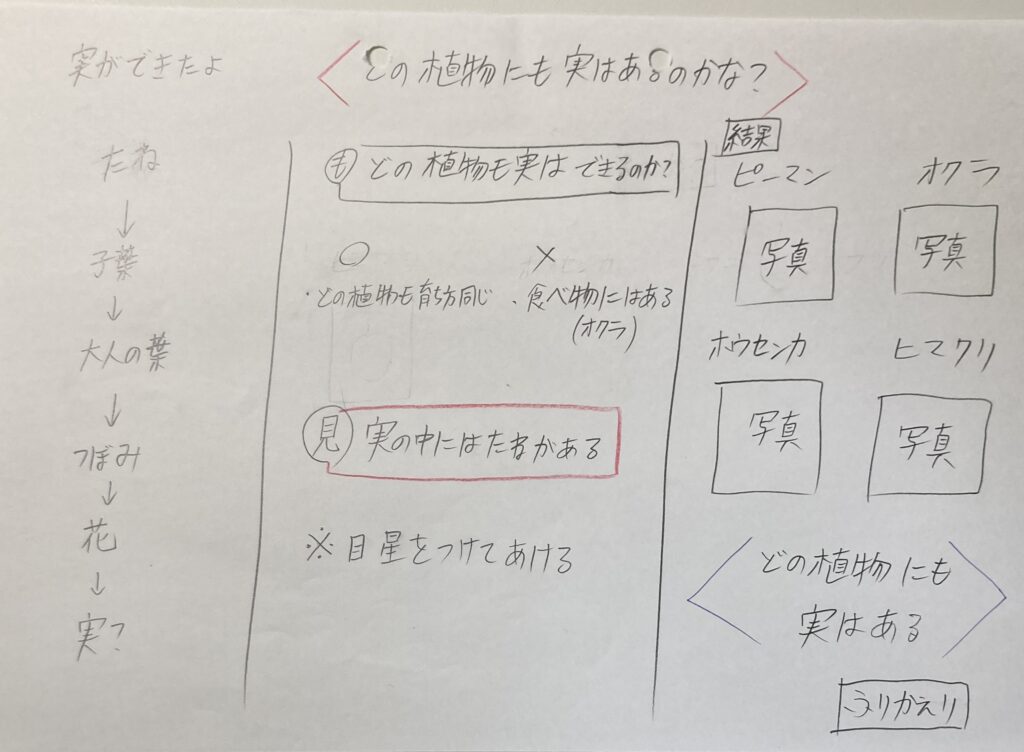 実ができたよ
どの植物にも実はあるのかな?
たね
↓
子葉
↓
大人の葉
↓
つぼみ
↓
花
↓
実?
も どの植物も実はできるのか?
○
・どの植物も育ち方同じ
×
・食べ物にはある
(オクラ)
見 実の中にはたねがある
※目星をつけてあける
結果
ピーマン オクラ
写真 写真
ホウセンカ ヒマワリ
写真 写真
どの植物にも
実はある
ふりかえり